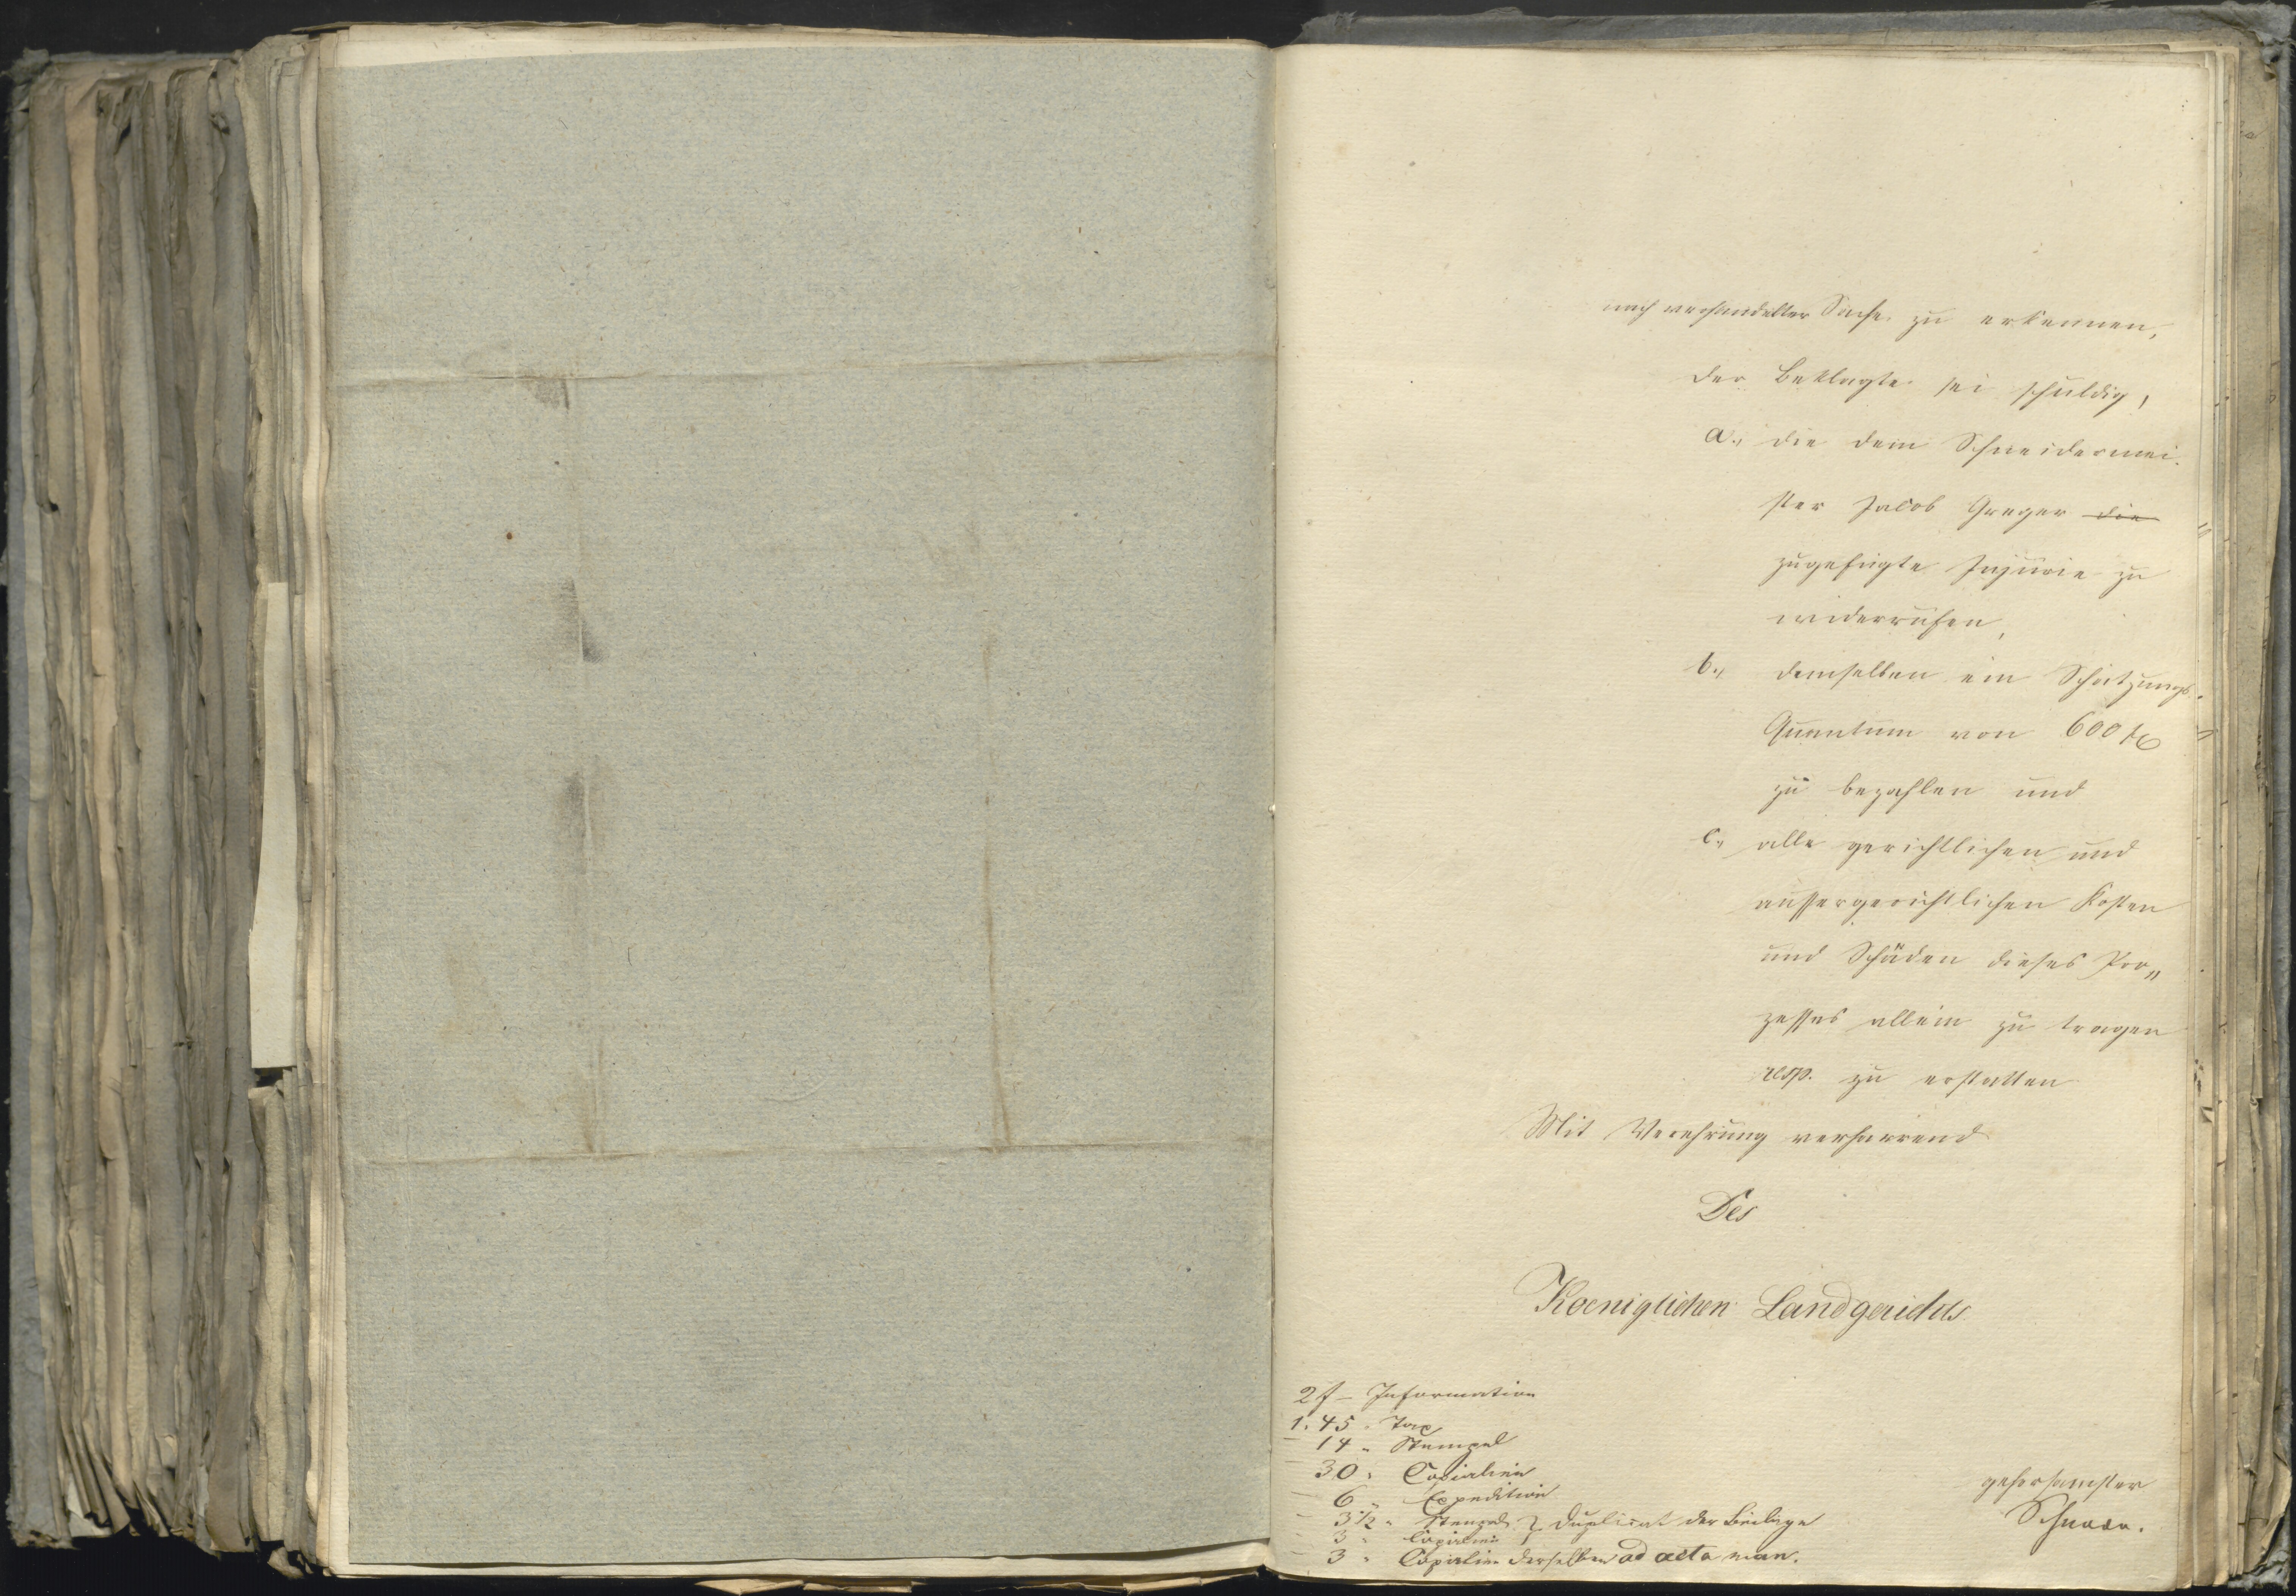 nach verhandelter Sache zu erkennen,
der Beklagte sei schuldig,
a., die dem Schneidermei-
ster Jacob Greger die
zugefügte Injurie zu
widerrufen,
b., demselben ein Schätzungs-
Quantum von 600 f
zu bezahlen und
c., alle gerichtlichen und
aussergerichtlichen Kosten
und Schäden dieses Pro„
zesses allein zu tragen
resp. zu erstatten
Mit Verehrung verharrend
Des
Koeniglichen Landgerichts
2 f – Information
1. 45 „ Tax
– 14 „ Stempel
– 30 „ Copialien
– 6 „ Expedition
– 3 1/2 „ Stempel } Duplicat der Beilage
– 3 „ Copialien
– 3 „ Copialien derselben ad acta man.
gehorsamster